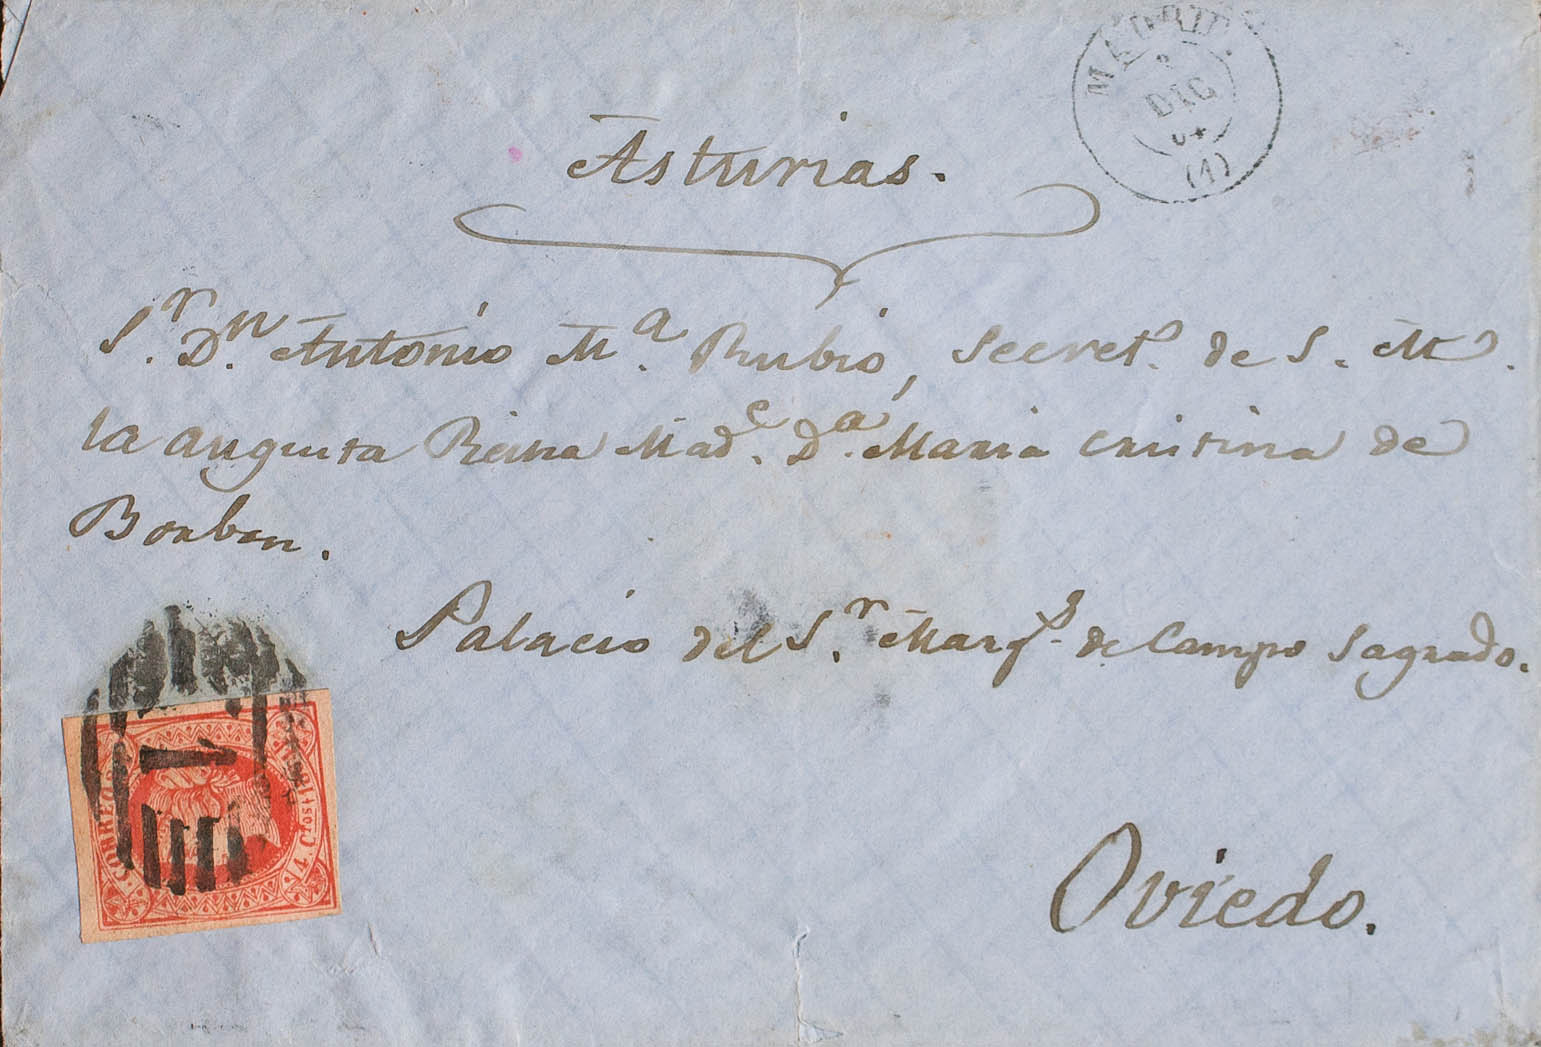 MADRID.
DIC
64
(1)
Asturias.
Sr. Dn. Antonio Ma. Rubio, Secreto. de S. M.
la augusta Reina Made. Da. Maria Cristina de
Borbon.
Palacio del Sr. Marqs. de Campo Sagrado.
CORREOS
4 Cuartos
1
Oviedo.